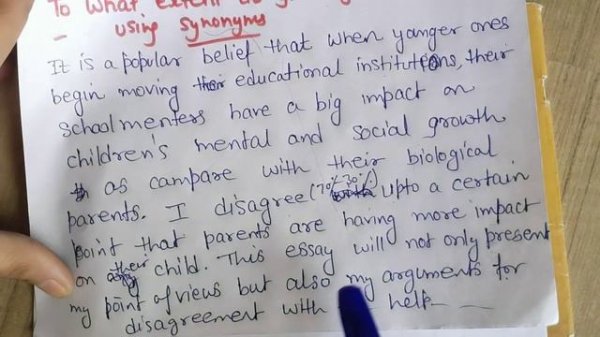 To what extent do you
- using synonyms
It is a popular belief that when yanger ones
begin moving their educational institutions, their
school menters have a big impact on
children's mental and social growth
as campare with their biological
parents. I disagree (70% 30%) upto a certain
point that parents are having more impact
on their child. This essay will not only present
my point of views but also my arguments for
disagreement with help